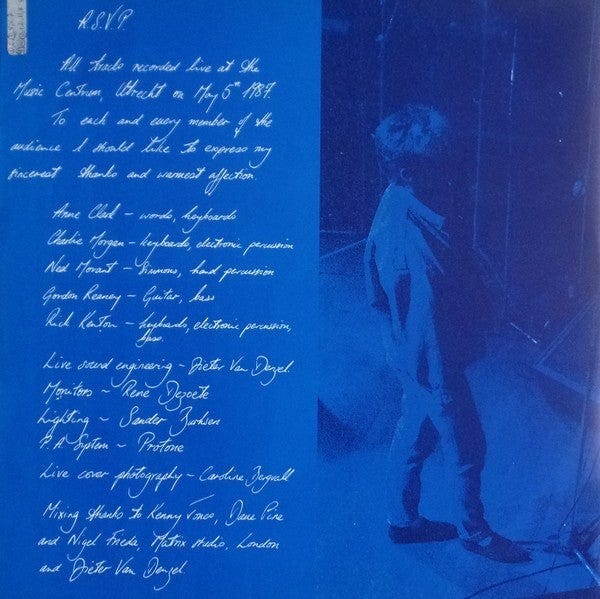 R.S.V.P.
All tracks recorded live at the
Music Centrum, Utrecht on May 5th 1987.
To each and every member of the
audience I should like to express my
sincerest thanks and warmest affection.
Anne Clark – words, keyboards
Charlie Morgan – keyboards, electronic percussion
Ned Morant – Simmons, hand percussion
Gordon Reaney – Guitar, bass
Rick Kenton – keyboards, electronic percussion,
bass.
Live sound engineering – Dieter Van Denzel.
Monitors – René Dezoete
Lighting – Sander
P.A. System – Protone
Live cover photography – Caroline Bergvall
Mixing thanks to Kenny Jones, Dave Pine
and Nigel Frieda, Matrix studio, London
and Dieter Van Denzel.